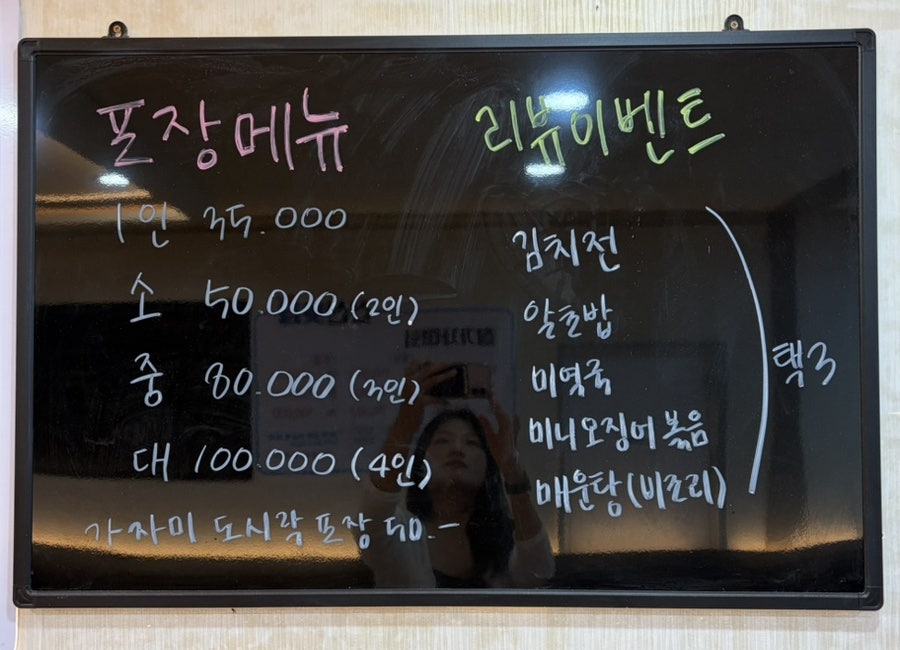 포장메뉴
1인 35.000
소 50.000 (2인)
중 80.000 (3인)
대 100.000 (4인)
가자미 도시락 포장 50.-
리뷰이벤트
김치전
알솥밥
미역국
미니오징어볶음
매운탕(비조리)
택3